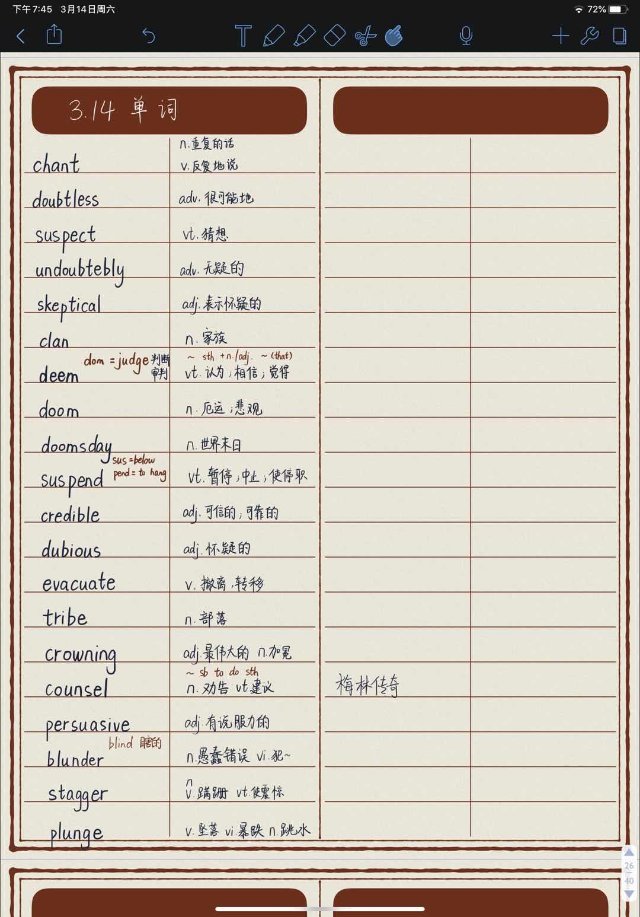 下午7:45 3月14日周六
72%
T
3.14 单词
n.重复的话
chant v.反复地说
doubtless adv.很可能地
suspect vt.猜想
undoubtebly adv.无疑的
skeptical adj.表示怀疑的
clan n.家族
dom = judge 判断 ~ sth +n./adj. ~ (that)
deem 审判 vt.认为;相信;觉得
doom n.厄运;悲观
doomsday n.世界末日
sus = below
suspend pend = to hang vt.暂停;中止;使停职
credible adj.可信的;可靠的
dubious adj.怀疑的
evacuate v.撤离,转移
tribe n.部落
crowning adj.最伟大的 n.加冕
~ sb to do sth
counsel n.劝告 vt建议 梅林传奇
persuasive adj.有说服力的
blind 瞎的
blunder n.愚蠢错误 vi.犯~
n
stagger v.蹒跚 vt.使震惊
plunge v.坠落 vi暴跌 n.跳水
26
40